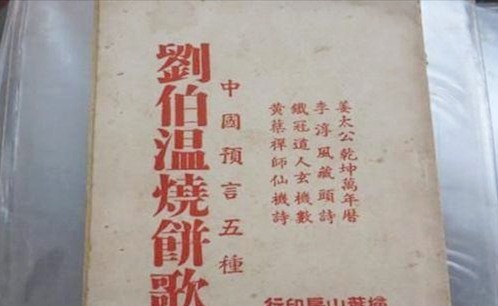 姜太公乾坤萬年曆
李淳風藏頭詩
鐵冠道人玄機數
黃蘗禪師仙機詩
中國預言五種
劉伯溫燒餅歌
掃葉山房印行